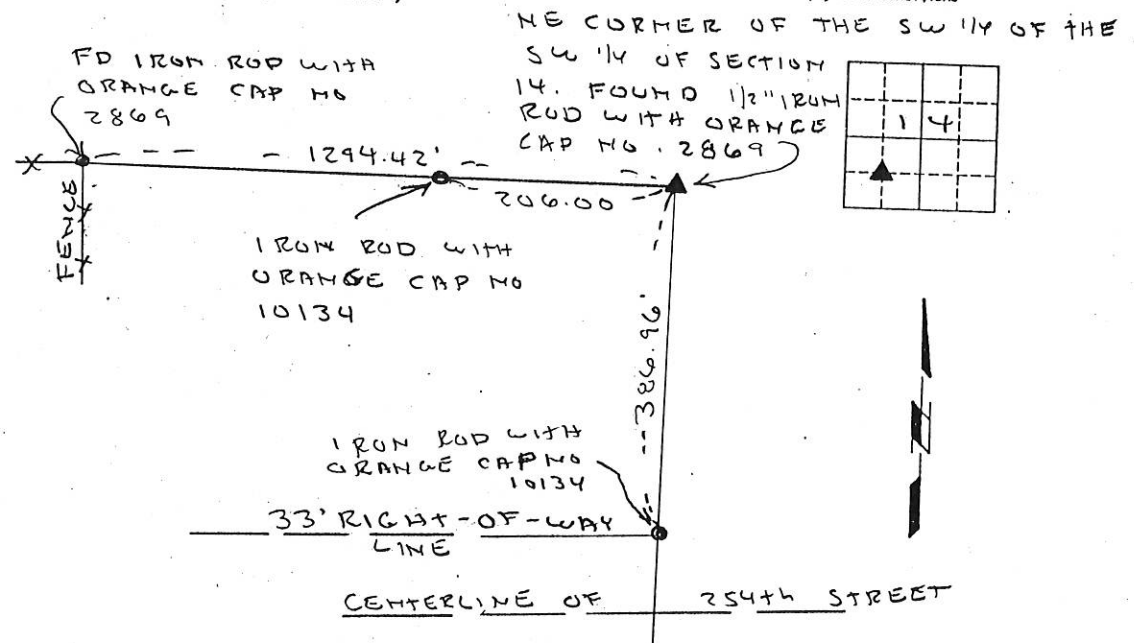 NE CORNER OF THE SW 1/4 OF THE
SW 1/4 OF SECTION
14. FOUND 1/2" IRON
ROD WITH ORANGE
CAP NO. 2869
FD IRON ROD WITH
ORANGE CAP NO
2869
14
1294.42'
206.00
FENCE
IRON ROD WITH
ORANGE CAP NO
10134
386.96'
N
IRON ROD WITH
ORANGE CAP NO
10134
33' RIGHT-OF-WAY
LINE
CENTERLINE OF 254th STREET